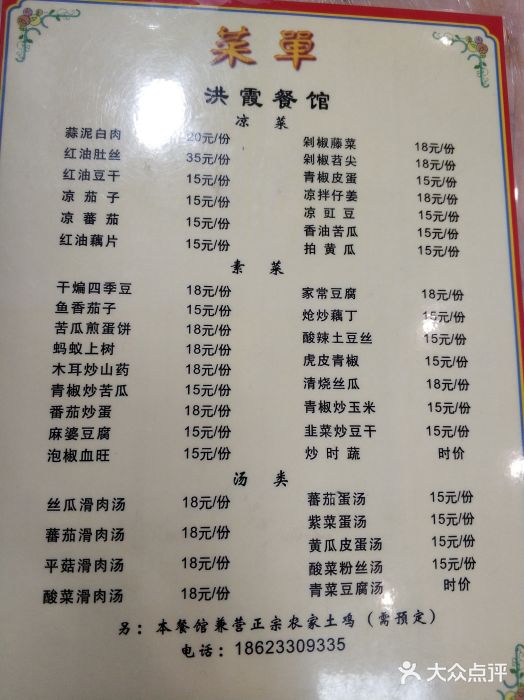 菜單
洪霞餐馆
凉菜
蒜泥白肉 20元/份
红油肚丝 35元/份
红油豆干 15元/份
凉茄子 15元/份
凉蕃茄 15元/份
红油藕片 15元/份
剁椒藤菜 18元/份
剁椒苕尖 18元/份
青椒皮蛋 15元/份
凉拌仔姜 18元/份
凉豇豆 15元/份
香油苦瓜 15元/份
拍黄瓜 15元/份
素菜
干煸四季豆 18元/份
鱼香茄子 15元/份
苦瓜煎蛋饼 18元/份
蚂蚁上树 18元/份
木耳炒山药 18元/份
青椒炒苦瓜 15元/份
番茄炒蛋 18元/份
麻婆豆腐 15元/份
泡椒血旺 15元/份
家常豆腐 18元/份
炝炒藕丁 15元/份
酸辣土豆丝 15元/份
虎皮青椒 15元/份
清烧丝瓜 18元/份
青椒炒玉米 15元/份
韭菜炒豆干 15元/份
炒时蔬 时价
汤类
丝瓜滑肉汤 18元/份
蕃茄滑肉汤 18元/份
平菇滑肉汤 18元/份
酸菜滑肉汤 18元/份
蕃茄蛋汤 15元/份
紫菜蛋汤 15元/份
黄瓜皮蛋汤 15元/份
酸菜粉丝汤 15元/份
青菜豆腐汤 时价
另：本餐馆兼营正宗农家土鸡（需预定）
电话：18623309335
大众点评